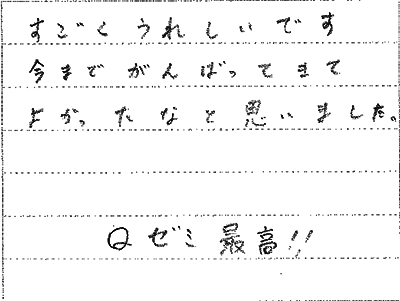 すごくうれしいです
今までがんばってきて
よかったなと思いました。
Qゼミ最高!!